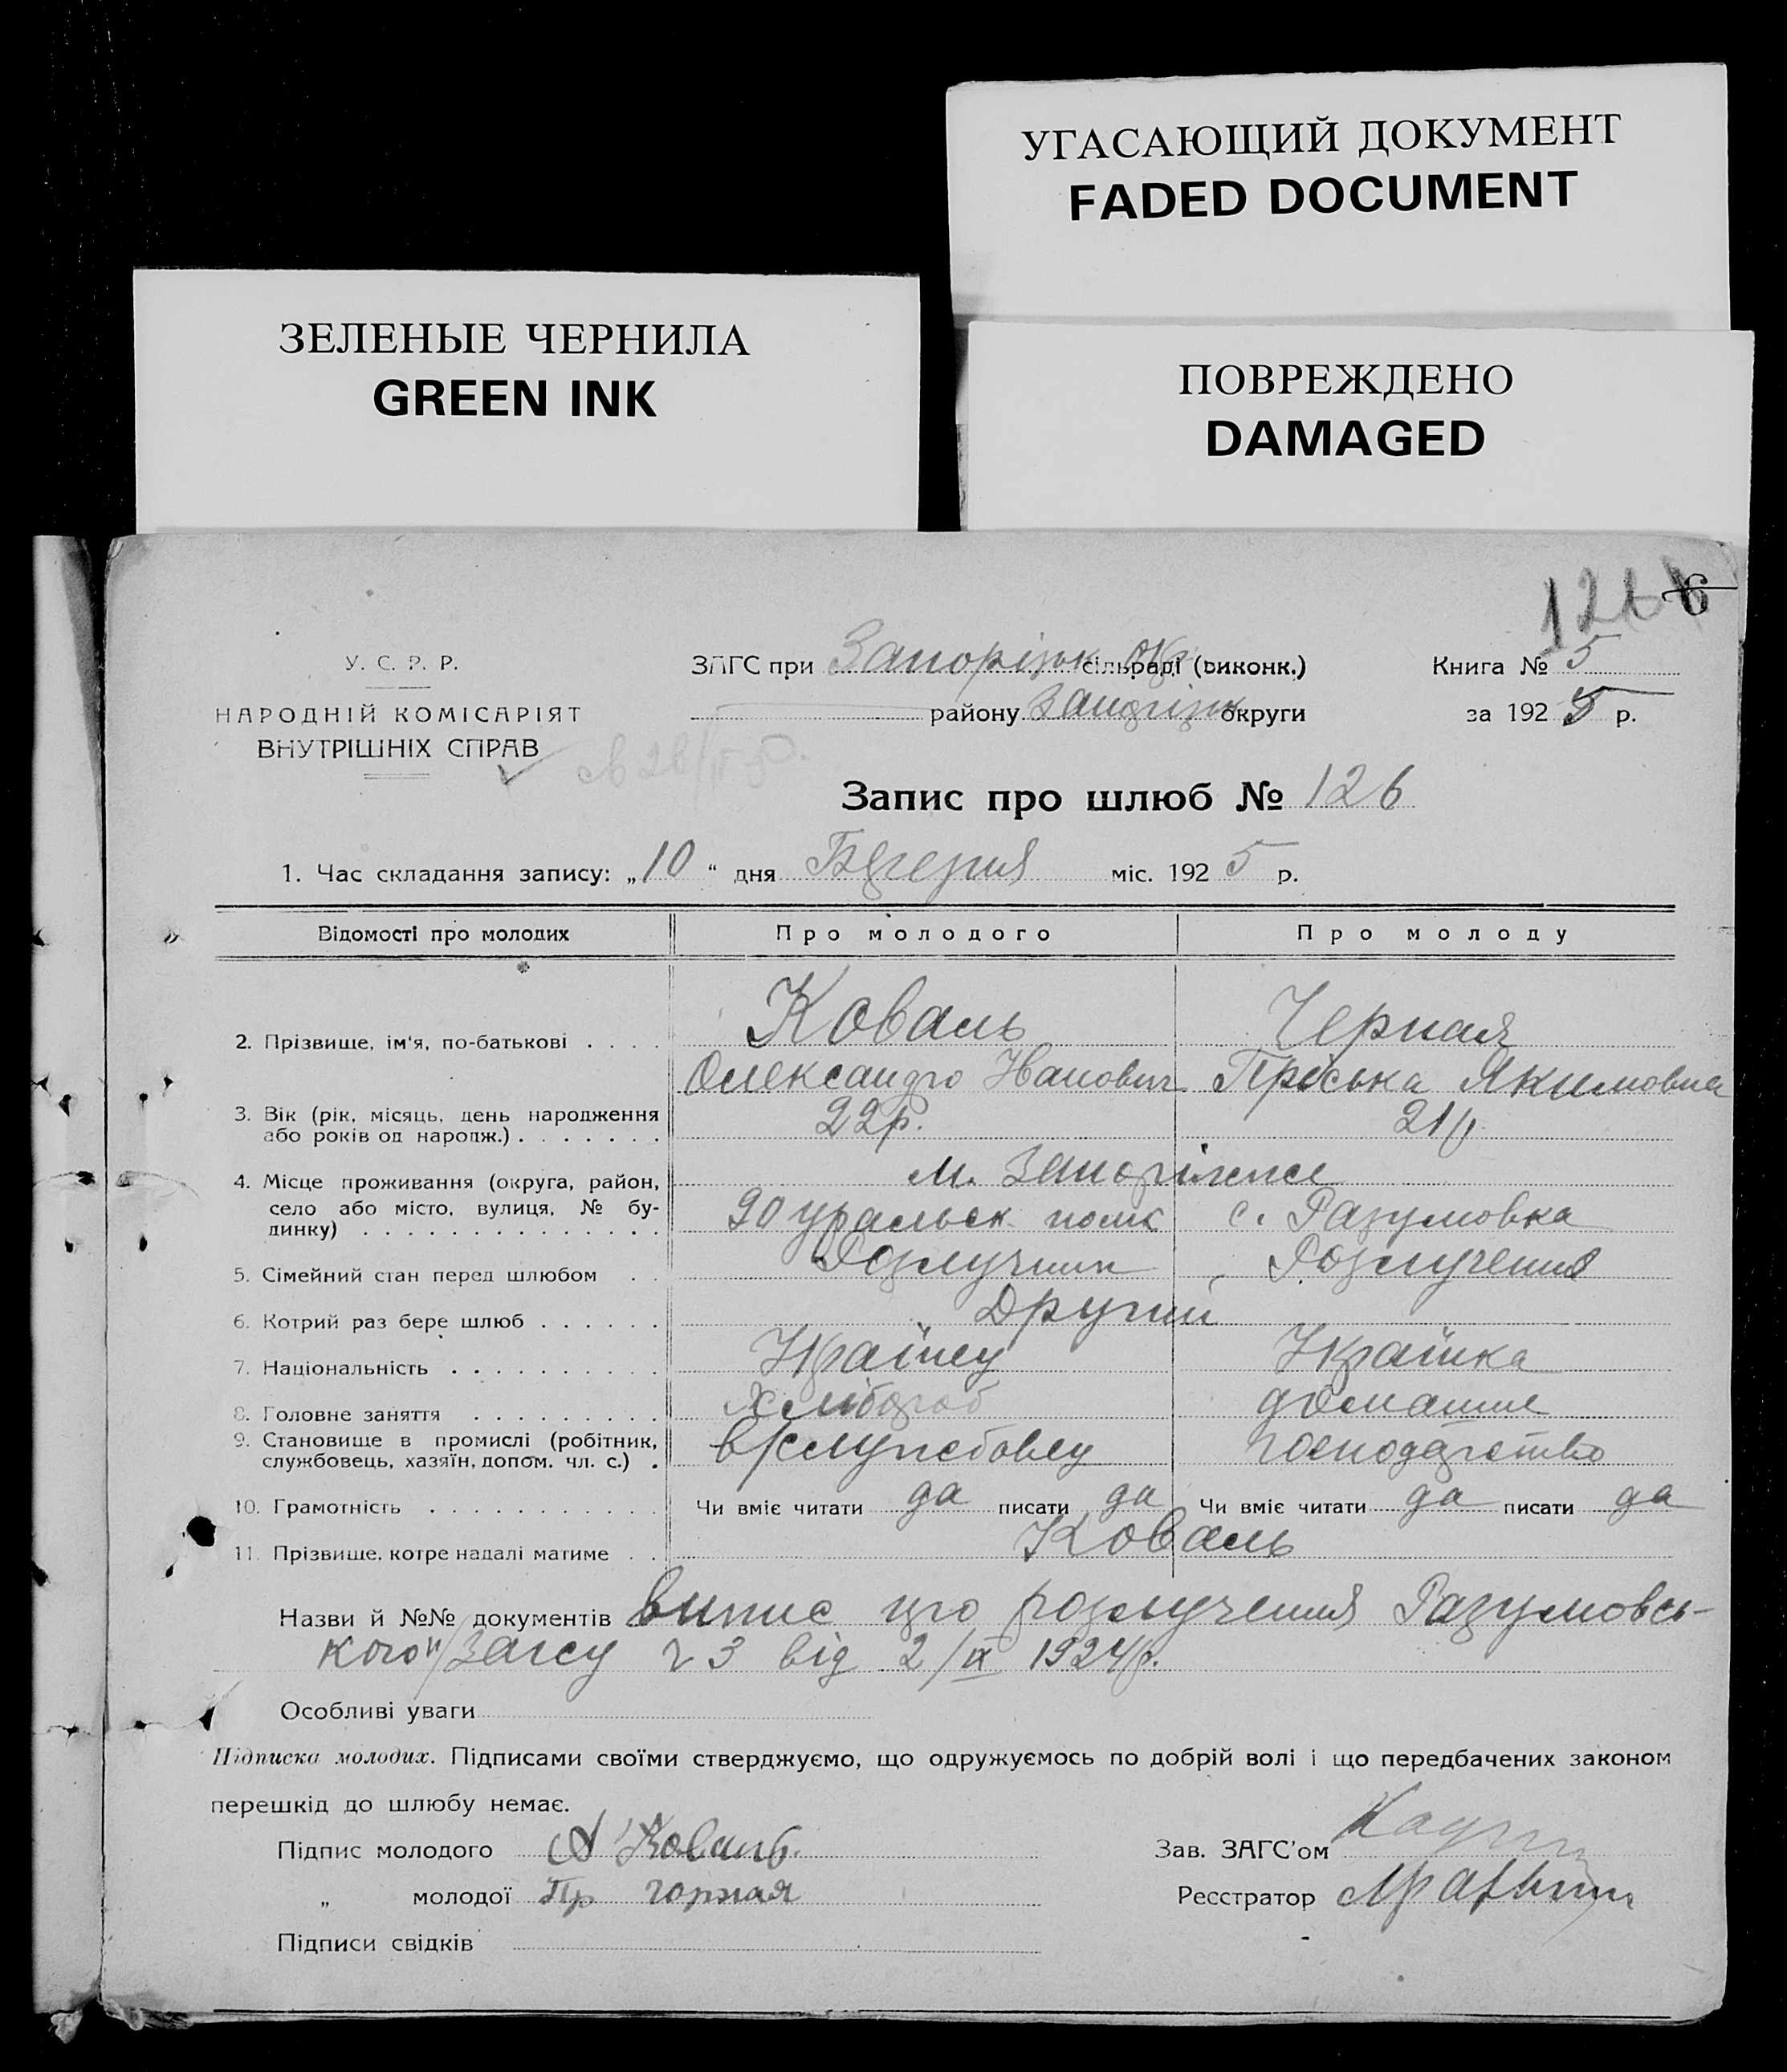 УГАСАЮЩИЙ ДОКУМЕНТ
FADED DOCUMENT
ЗЕЛЕНЫЕ ЧЕРНИЛА
GREEN INK
ПОВРЕЖДЕНО
DAMAGED
126
У. С. Р. Р.
НАРОДНІЙ КОМІСАРІЯТ
ВНУТРІШНІХ СПРАВ
ЗАГС при Запорізьк. Окр. сільраді (виконк.)
району Запоріз округи
Книга № 5
за 1925 р.
Запис про шлюб № 126
1. Час складання запису: „10“ дня Березня міс. 1925 р.
Відомості про молодих Про молодого Про молоду
2. Прізвище, ім'я, по-батькові . . . . Коваль Черная
Олександр Иванович Пріська Якимовна
3. Вік (рік, місяць, день народження або років од народж.) . . . . . . . 22р. 21р
4. Місце проживання (округа, район, село або місто, вулиця, № будинку) . . . . . . . . . . . . . . м. Запоріжже
90 уральск полк с. Разумовка
5. Сімейний стан перед шлюбом . . Розлучник Розлучения
6. Котрий раз бере шлюб . . . . . . Другий
7. Національність . . . . . . . . . . Украінец Украінка
8. Головне заняття . . . . . . . . . Хлібороб домашне
9. Становище в промислі (робітник, службовець, хазяїн, допом. чл. с.) . в/службовец господарство
10. Грамотність . . . . . . . . . . . Чи вміє читати да писати да Чи вміє читати да писати да
11. Прізвище, котре надалі матиме . . Коваль
Назви й №№ документів Випис про розлучения Разумовсь-
кого Загсу ч 3 від 2/IX 1924р.
Особливі уваги
Підписка молодих. Підписами своїми стверджуємо, що одружуємось по добрій волі і що передбачених законом
перешкід до шлюбу немає.
Підпис молодого А Коваль
„ молодої Пр Чорная
Підписи свідків
Зав. ЗАГС'ом
Реєстратор